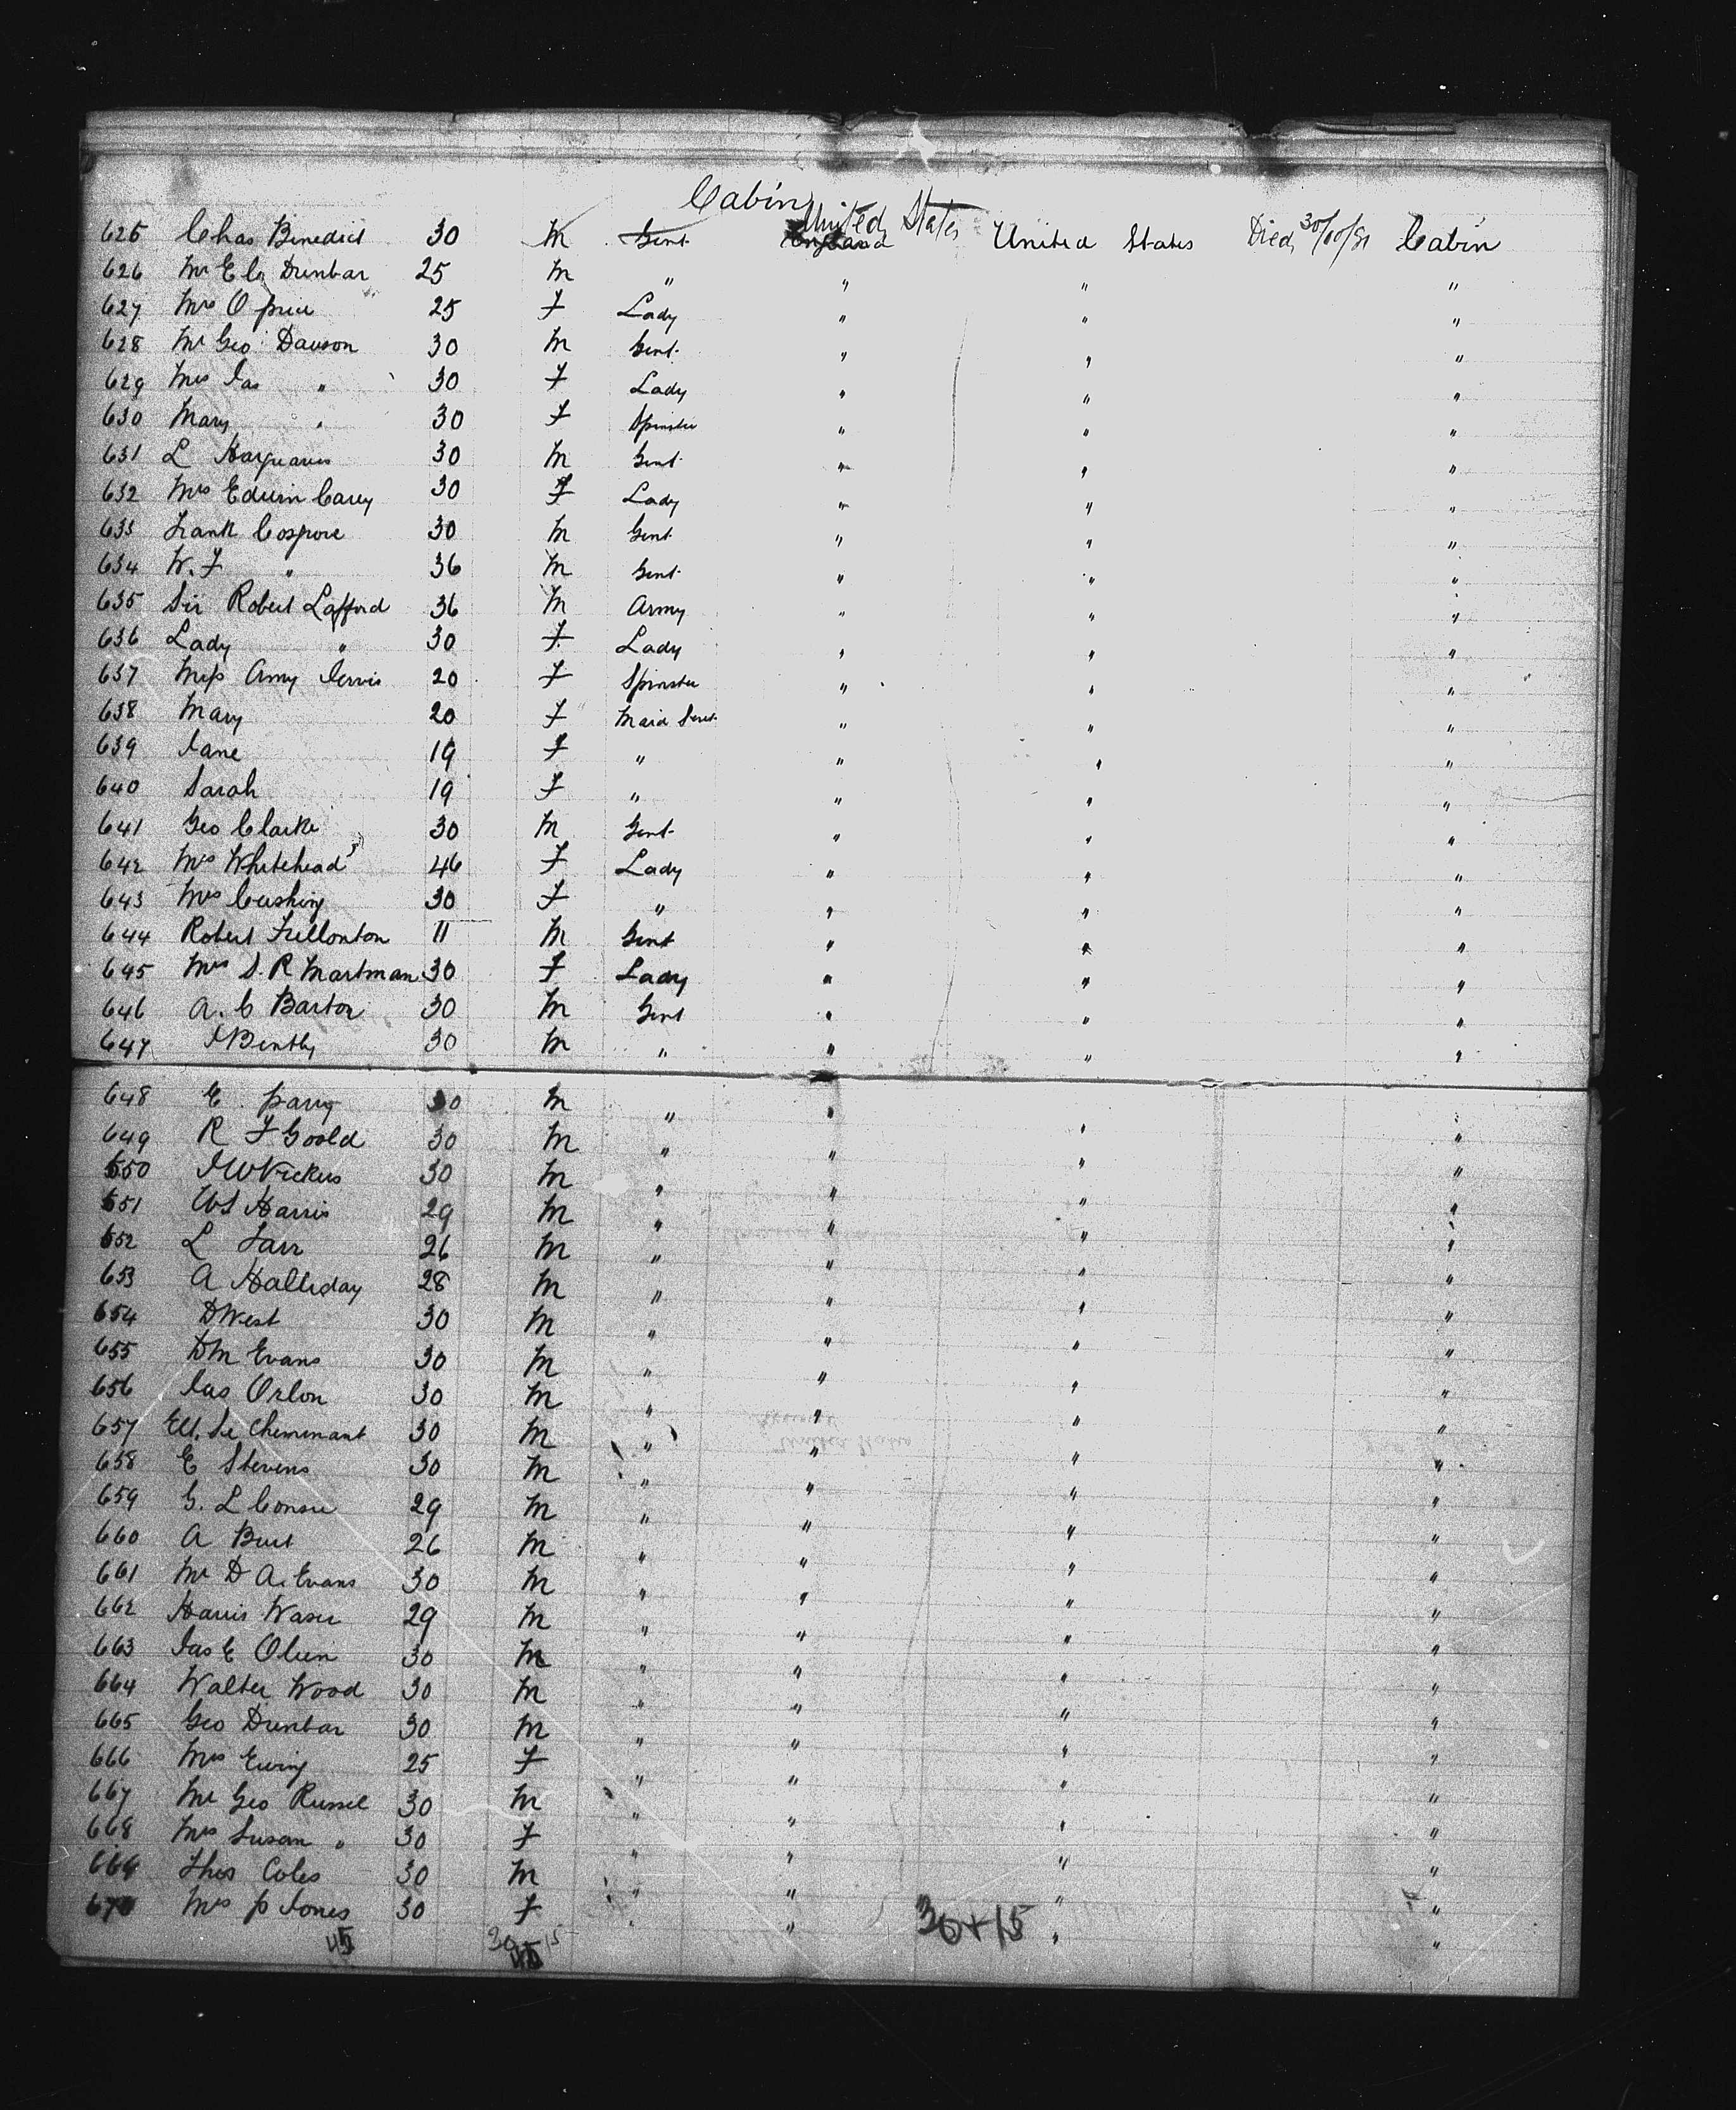 Cabin
625 Chas Benedict 30 M Gent United States England United States Died 30/10/81 Cabin
626 Mr E C Dunbar 25 M " " " "
627 Mrs O Price 25 F Lady " " "
628 Mr Geo Dawson 30 M Gent " " "
629 Mrs Jas " 30 F Lady " " "
630 Mary " 30 F Spinster " " "
631 L Hargreaves 30 M Gent " " "
632 Mrs Edwin Carey 30 F Lady " " "
633 Frank Cospore 30 M Gent " " "
634 W. F " 36 M Gent " " "
635 Sir Robert Lafford 36 M Army " " "
636 Lady " 30 F Lady " " "
637 Miss Amy Jervis 20 F Spinster " " "
638 Mary 20 F Maid Servt " " "
639 Jane 19 F " " " "
640 Sarah 19 F " " " "
641 Geo Clarke 30 M Gent " " "
642 Mrs Whitehead 46 F Lady " " "
643 Mrs Cushing 30 F " " " "
644 Robert Fullonton 11 M Gent " " "
645 Mrs S. R Martman 30 F Lady " " "
646 A. C Barton 30 M Gent " " "
647 J Bently 30 M " " " "
648 E Parry 30 M " " " "
649 R F Goold 30 M " " " "
650 J W Vickers 30 M " " " "
651 W S Harris 29 M " " " "
652 L Farr 26 M " " " "
653 A Halliday 28 M " " " "
654 D West 30 M " " " "
655 D M Evans 30 M " " " "
656 Jas Orlon 30 M " " " "
657 Le Cheminant 30 M " " " "
658 E Stevens 30 M " " " "
659 G. L 29 M " " " "
660 A Burt 26 M " " " "
661 Mr D A. Evans 30 M " " " "
662 Harris Waser 29 M " " " "
663 Jas E Olien 30 M " " " "
664 Walter Wood 30 M " " " "
665 Geo Dunbar 30 M " " " "
666 Mrs Ewing 25 F " " " "
667 Mr Geo Russel 30 M " " " "
668 Mrs Susan " 30 F " " " "
669 Thos Coles 30 M " " " "
670 Mrs P Jones 30 F " " " "
30+15
45 30 15
45